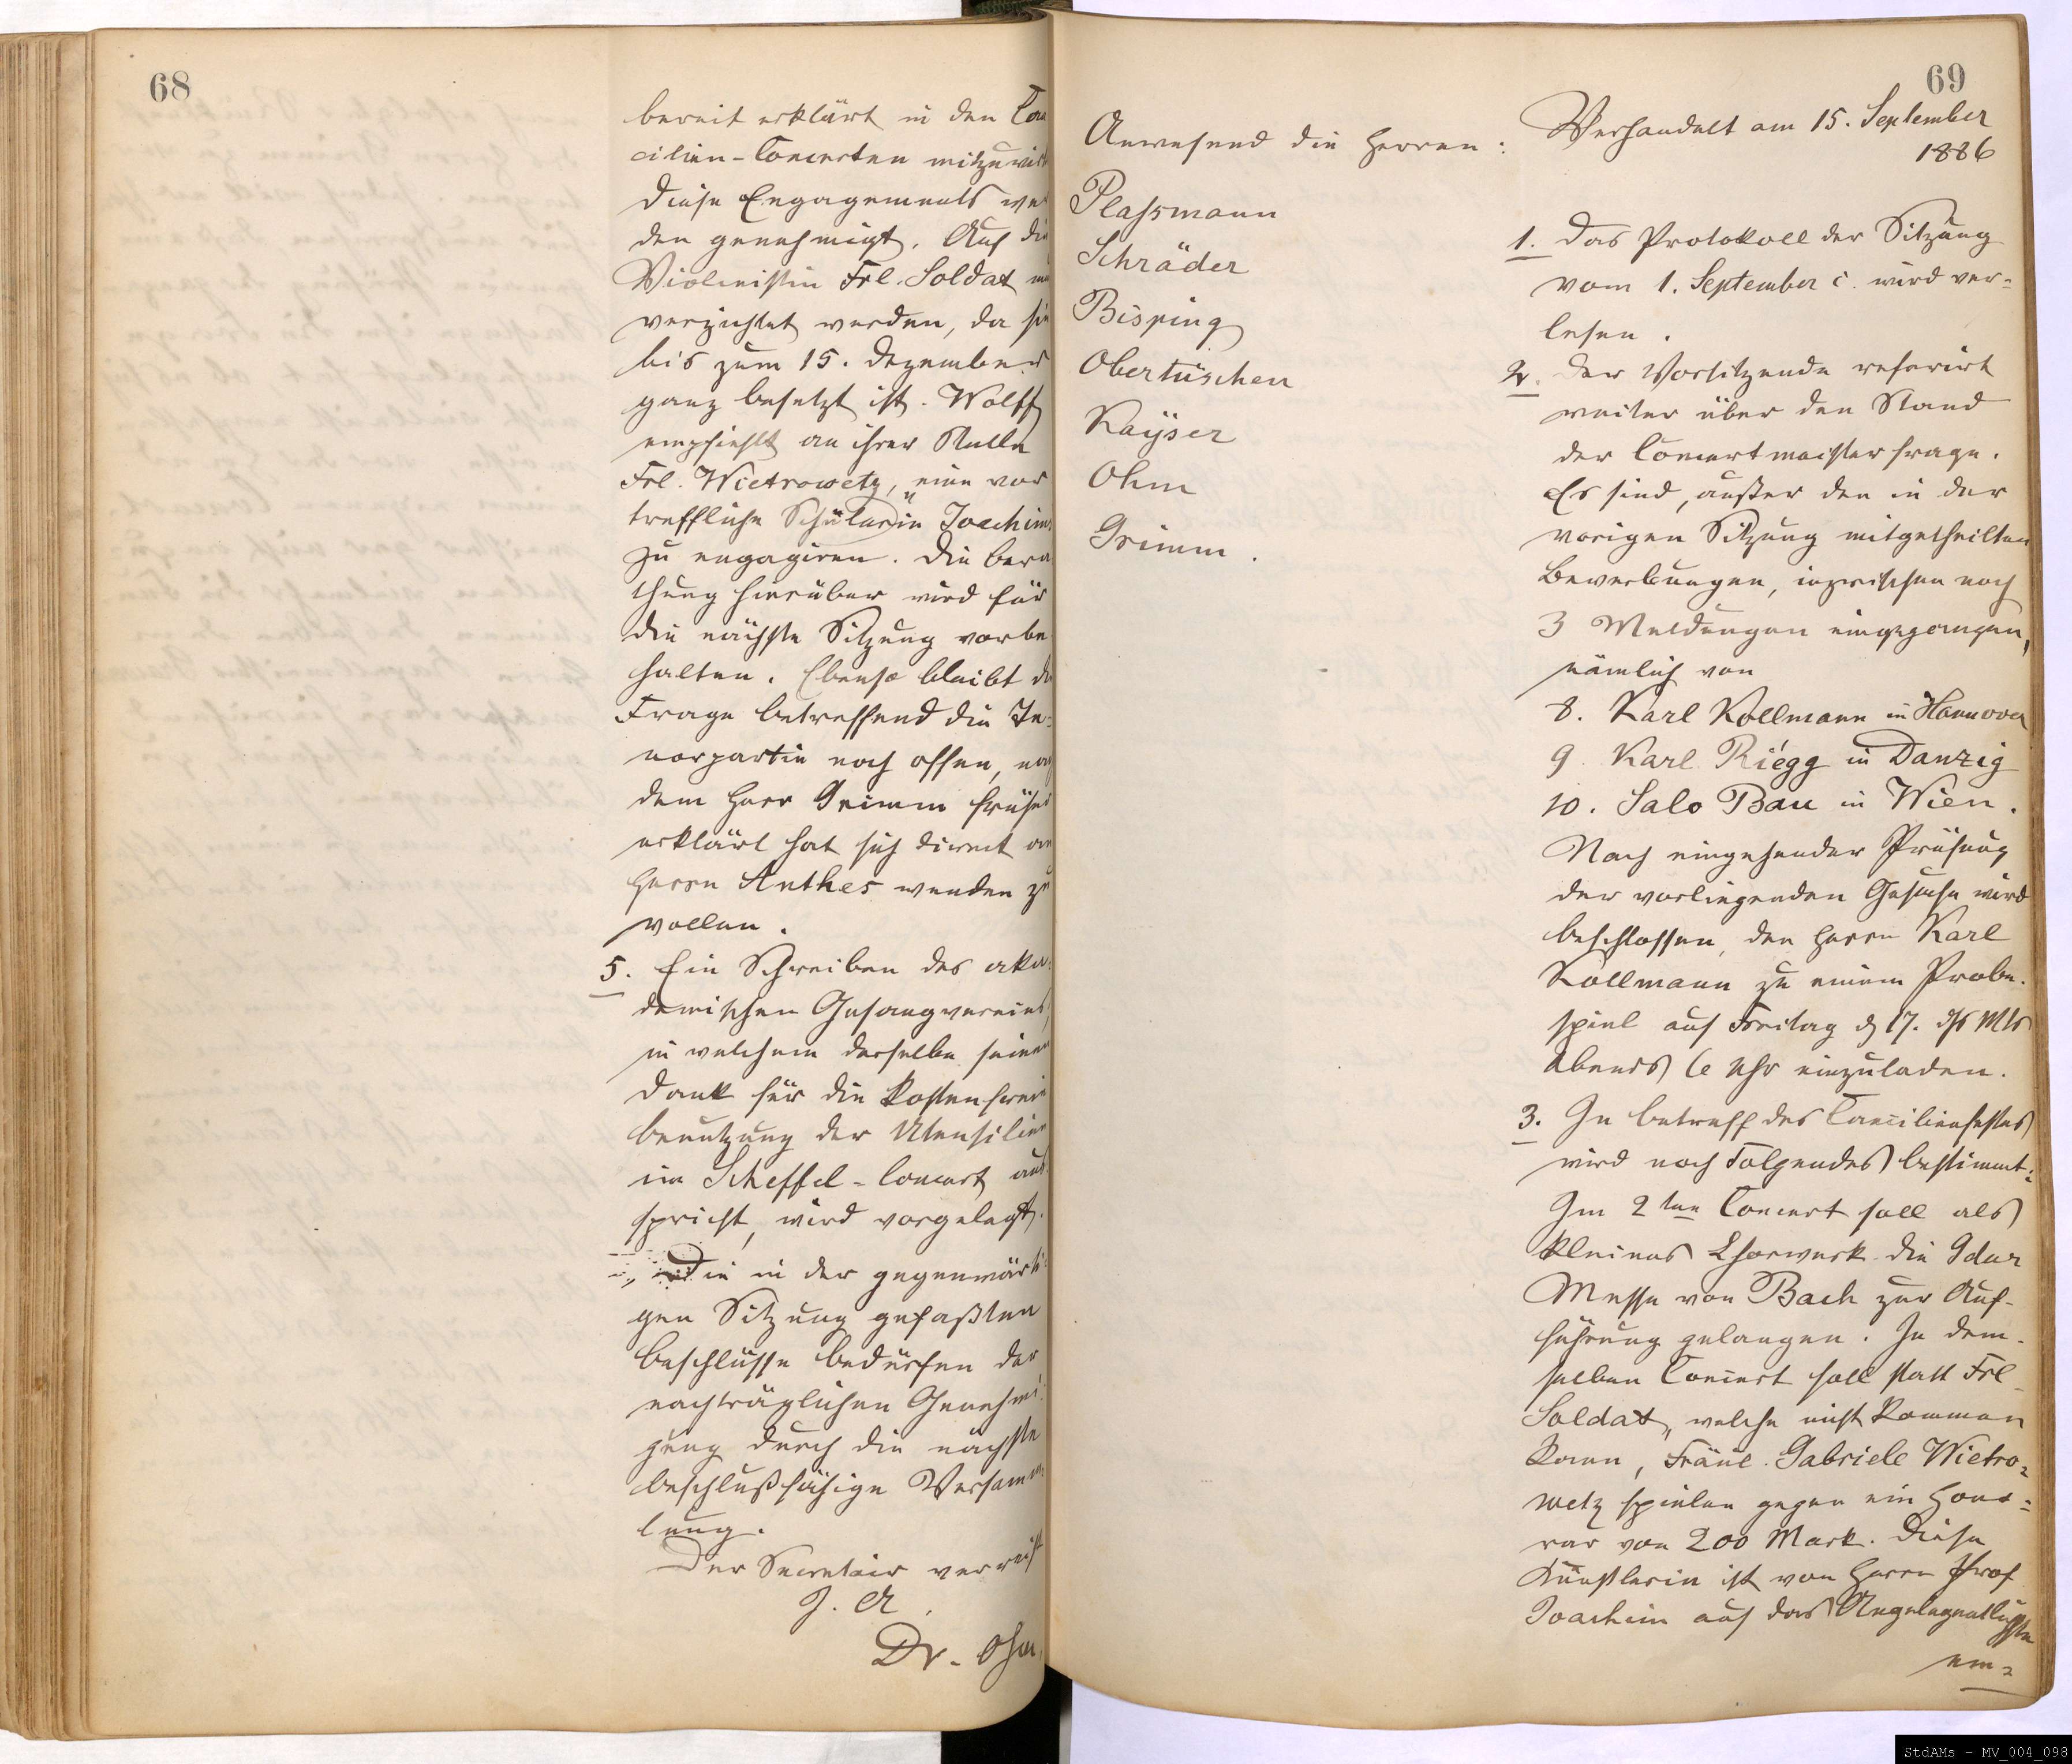 68
bereit erklärt in den Cae
cilien-Concerten mitzuwirk
Diese Engagements wer
den genehmigt. Auf die
Violinistin Frl. Soldat mu
verzichtet werden, da sie
bis zum 15. Dezember
ganz besetzt ist. Wolff
empfiehlt an ihrer Stelle
Frl. Wietrowetz, eine vor
treffliche Schülerin Joachims
zu engagiren. Die Bera
thung hierüber wird für
die nächste Sitzung vorbe
halten. Ebenso bleibt die
Frage betreffend die Te-
norpartie noch offen, nach
dem Herr Grimm früher
erklärt hat sich direct an
Herrn Anthes wenden zu
wollen.
5. Ein Schreiben des aka-
demischen Gesangvereins,
in welchem derselbe seinen
Dank für die kostenfreie
Benutzung der Utensilien
im Scheffel-Concert aus
spricht, wird vorgelegt.
Die in der gegenwärti-
gen Sitzung gefaßten
Beschlüsse bedürfen der
nachträglichen Genehmi-
gung durch die nächste
beschlußfähige Versamm-
lung.
Der Secretair verreist
J. A.
Dr. Ohm.
69
Verhandelt am 15. September
1886
Anwesend die Herren:
Plassmann
Schräder
Bisping
Obertüschen
Kaÿser
Ohm
Grimm.
1. Das Protokoll der Sitzung
vom 1. September c. wird ver-
lesen.
2. Der Vorsitzende referirt
weiter über den Stand
der Concertmeisterfrage.
Es sind, außer den in der
vorigen Sitzung mitgetheilten
Bewerbungen, inzwischen noch
3 Meldungen eingegangen,
nämlich von
8. Karl Kollmann in Hannover
9. Karl Riégg in Danzig
10. Salo Bau in Wien.
Nach eingehender Prüfung
der vorliegenden Gesuche wird
beschlossen, den Herrn Karl
Kollmann zu einem Probe-
spiel auf Freitag d 17. ds Mts
Abends 6 Uhr einzuladen.
3. In betreff des Caecilienfestes
wird noch Folgendes bestimmt:
Im 2ten Concert soll als
kleines Chorwerk die Gdur
Messe von Bach zur Auf-
führung gelangen. In dem-
selben Concert soll statt Frl
Soldat, welche nicht kommen
kann, Fräul. Gabriele Wietro-
wetz spielen gegen ein Hono-
rar von 200 Mark. Diese
Künstlerin ist von Herrn Prof
Joachim auf das Angelegentlichste
em-
StdAMs - MV_004_098